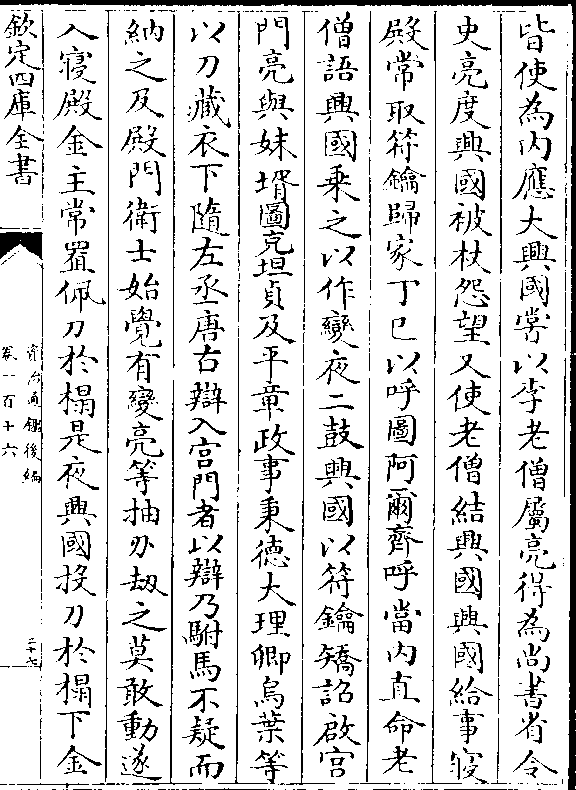 皆使為内應大興國嘗以李老僧屬亮得為尚書省令
史亮度興國被杖怨望又使老僧結興國興國給事寢
殿常取符鑰歸家丁巳以呼圖阿爾齊呼當内直命老
僧語興國乗之以作變夜二鼓興國以符鑰矯詔啟宫
門亮與妹壻圖克坦貞及平章政事秉徳大理卿烏葉等
以刀藏衣下隨左丞唐古辯入宫門者以辯乃駙馬不疑而
納之及殿門衛士始覺有變亮等抽刃刼之莫敢動遂
入寢殿金主常置佩刀於榻是夜興國投刀於榻下金
欽定四庫全書
資治通鑑後編
卷一百十六
三十六